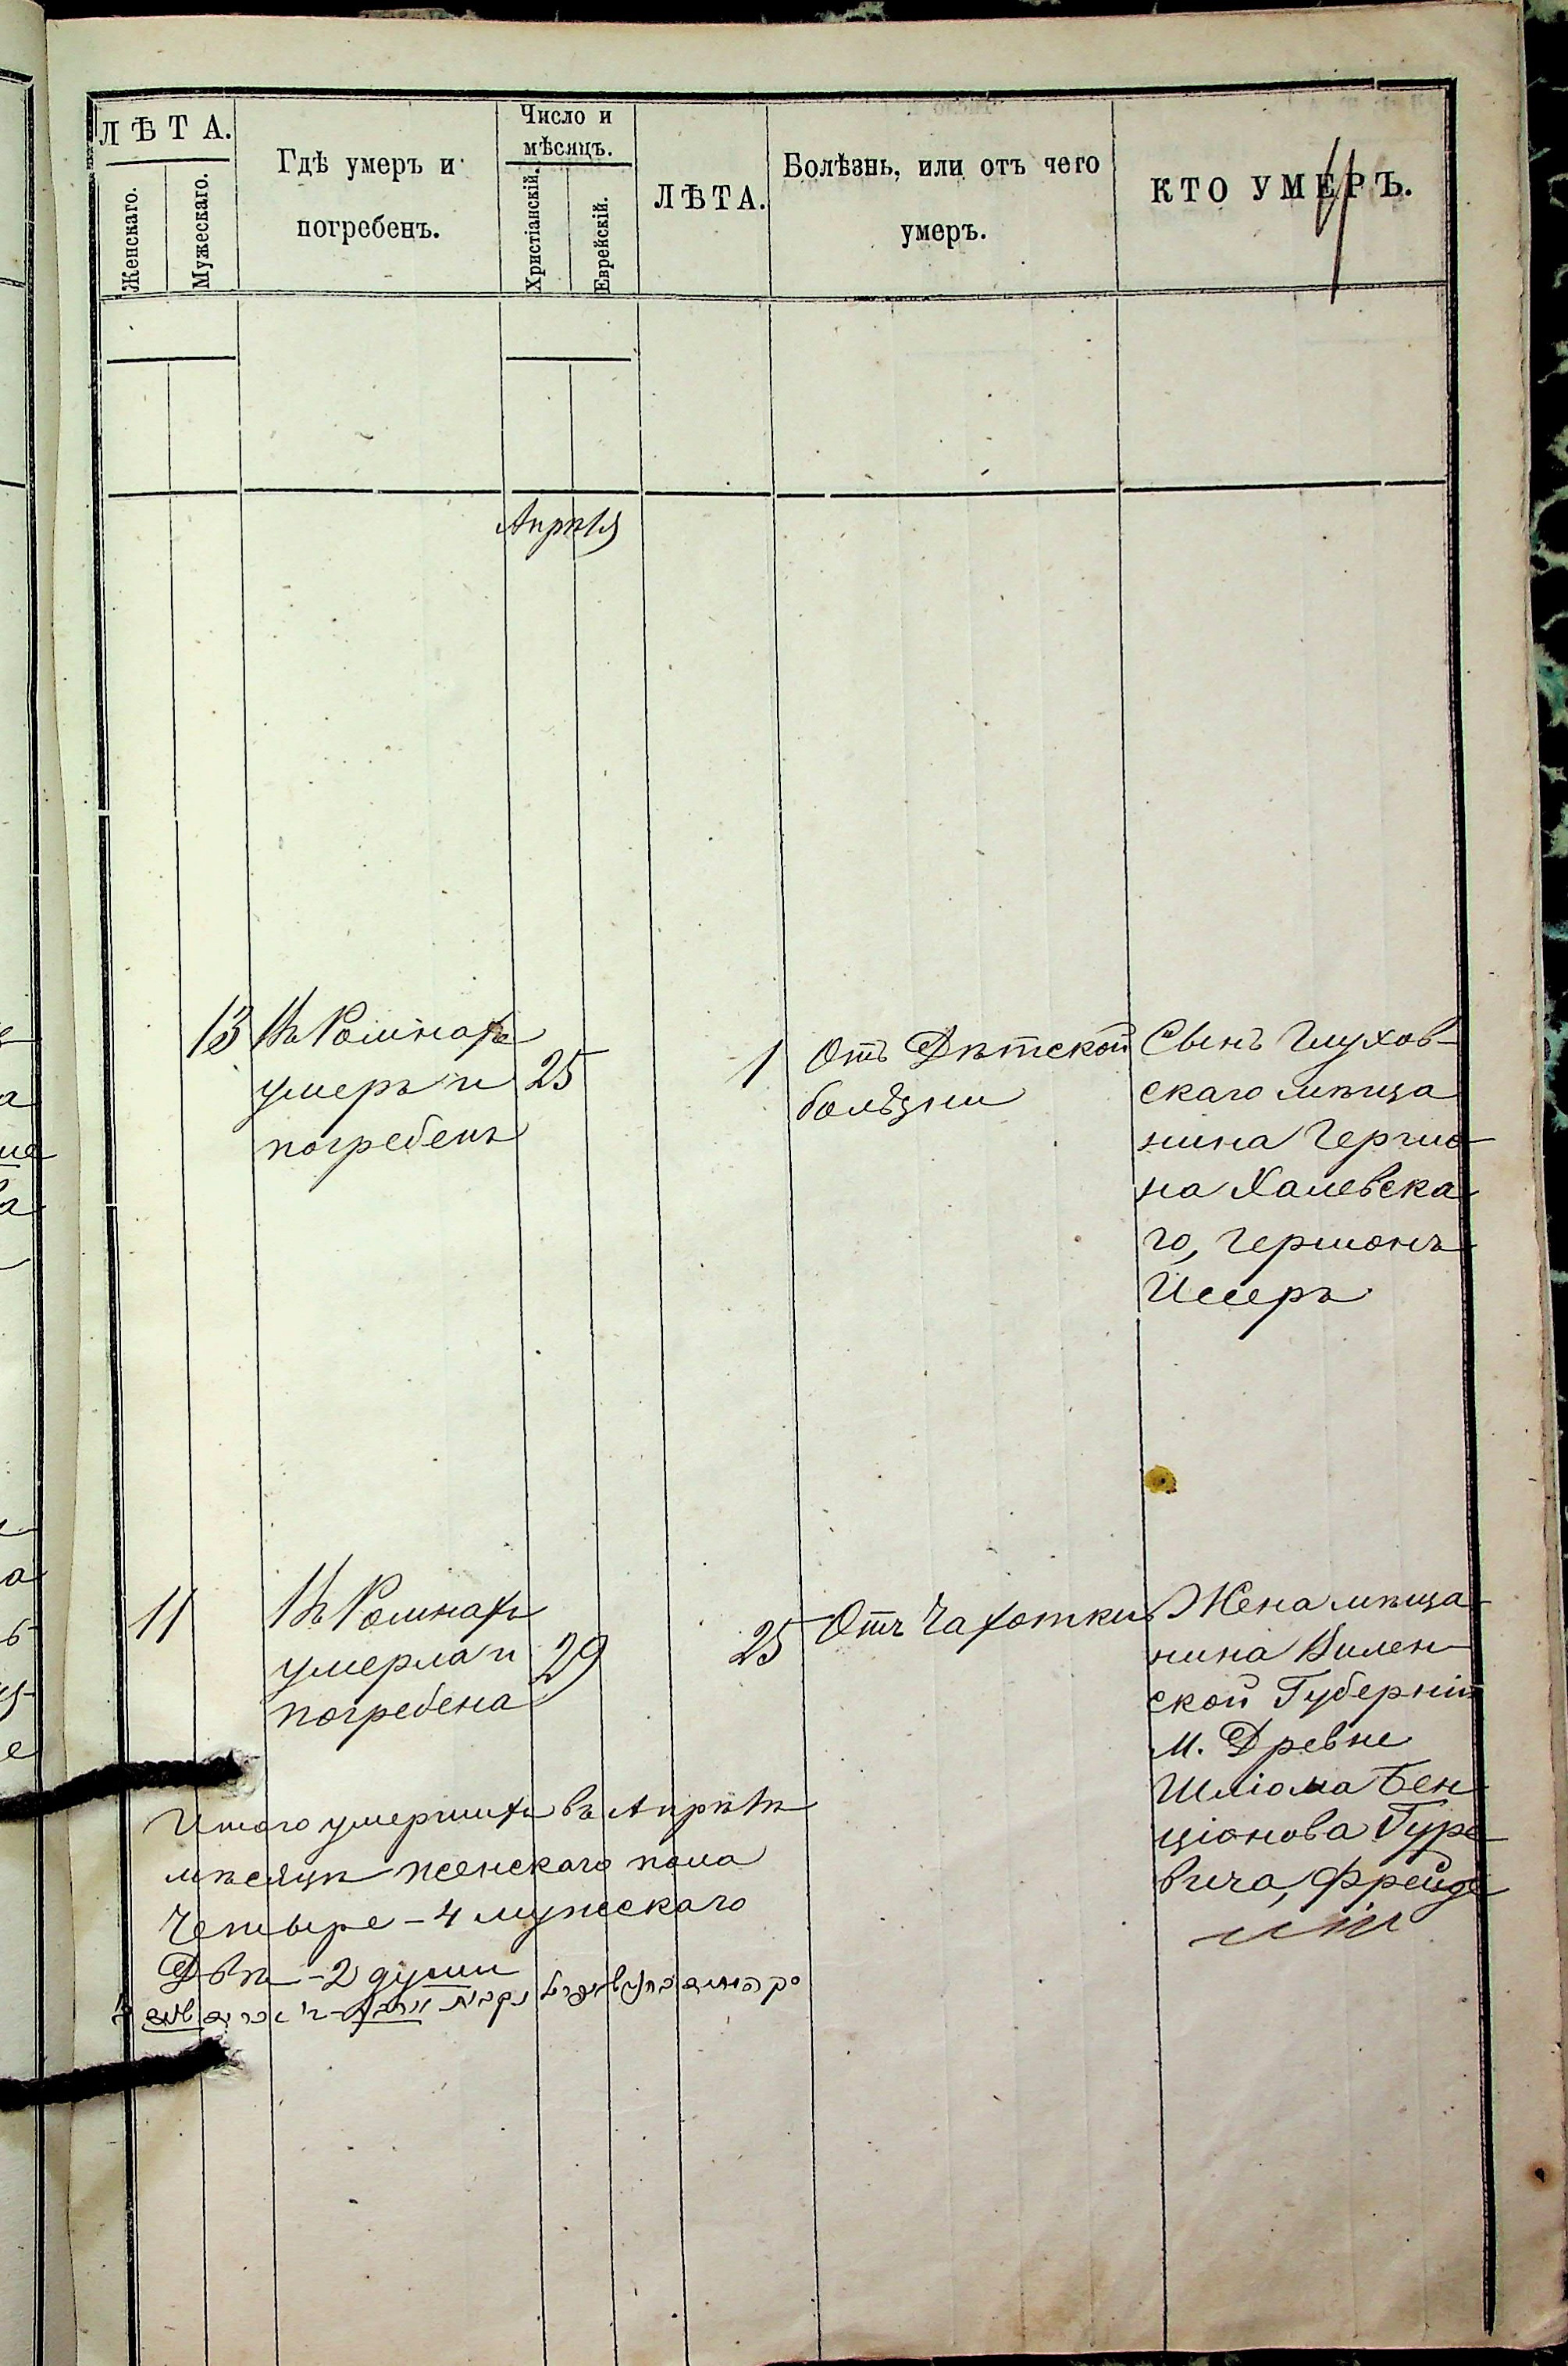 ЛѢТА.
Женскаго.
Мужескаго.
Гдѣ умеръ и
погребенъ.
Число и
мѣсяцъ.
Христіанскій.
Еврейскій.
ЛѢТА.
Болѣзнь, или отъ чего
умеръ.
КТО УМЕРЪ.
Апрѣля
13
Въ Ромнахъ
умеръ и
погребенъ
25
1
Отъ Дѣтской
болѣзни
Сынъ Глухов-
скаго мѣща
нина Гершо-
на Халевска
го, Гершонъ
Иссеръ
11
Въ Ромнахъ
умерла и
погребена
29
25
Отъ Чахотки
Жена мѣща-
нина Вилен-
ской Губерніи
м. Древне
Шліома Бен-
ціонова Гуре-
вича, Фрейде
Итого умершихъ въ Апрѣлѣ
мѣсяцѣ женскаго пола
Четыре - 4 мужескаго
Двѣ - 2 души